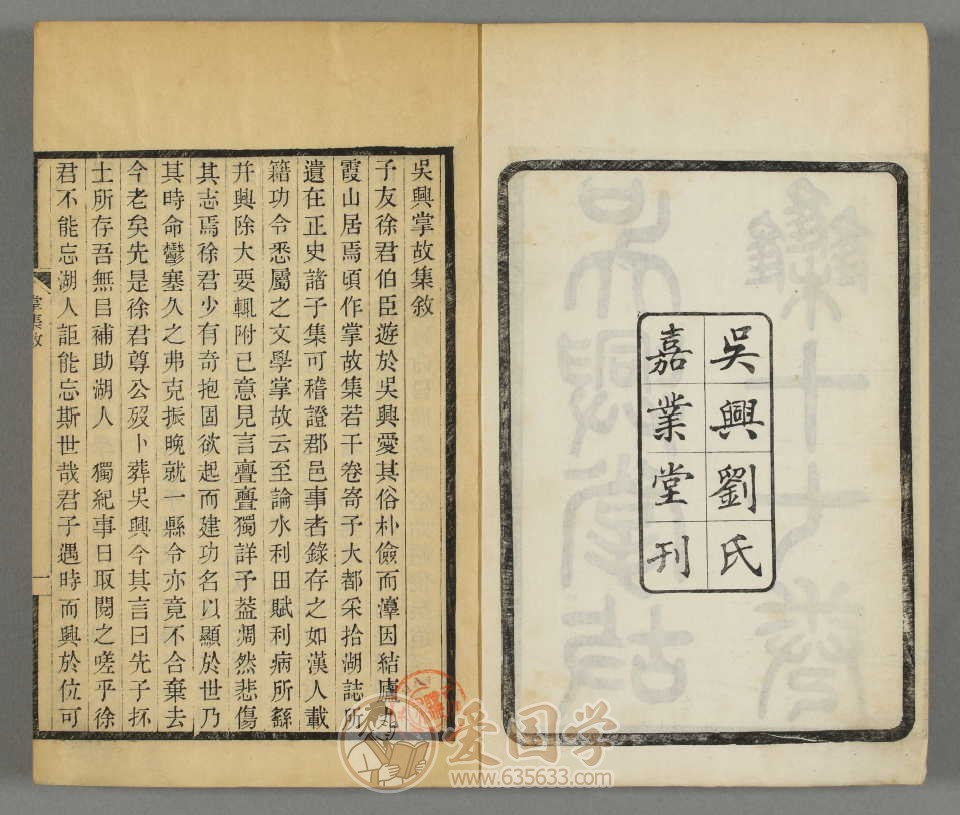 吳興劉氏
嘉業堂刊
吳興掌故集敘
子友徐君伯臣遊於吳興愛其俗朴儉而淳因結廬
霞山居焉頃作掌故集若干卷寄予大都采拾湖誌所
遺在正史諸子集可稽證郡邑事者錄存之如漢人載
籍功令悉屬之文學掌故云至論水利田賦利病所繇
幷興除大要輒附已意見言亹亹獨詳予益凋然悲傷
其志焉徐君少有奇抱固欲起而建功名以顯於世乃
其時命鬱塞久之弗克振晚就一縣令亦竟不合棄去
今老矣先是徐君尊公歿卜葬吳興今其言曰先子抔
土所存吾無㠯補助湖人 獨紀事日取閱之嗟乎徐
君不能忘湖人詎能忘斯世哉君子遇時而興於位可
掌集敘
一
爱国学
www.635633.com